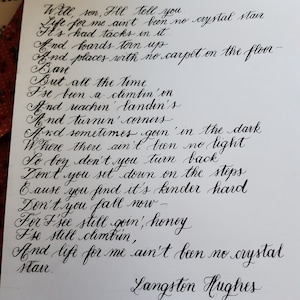 Well son, I'll tell you
Life for me ain't been no crystal stair
It's had tacks in it
And boards torn up
And places with no carpet on the floor—
Bare
But all the time
I'se been a climbin' on
And reachin' landin's
And turnin' corners
And sometimes goin' in the dark
Where there ain't been no light
So boy don't you turn back
Don't you set down on the steps
'Cause you find it's kinder hard
Don't you fall now—
For I'se still goin', honey
I'se still climbin',
And life for me ain't been no crystal
stair.
Langston Hughes